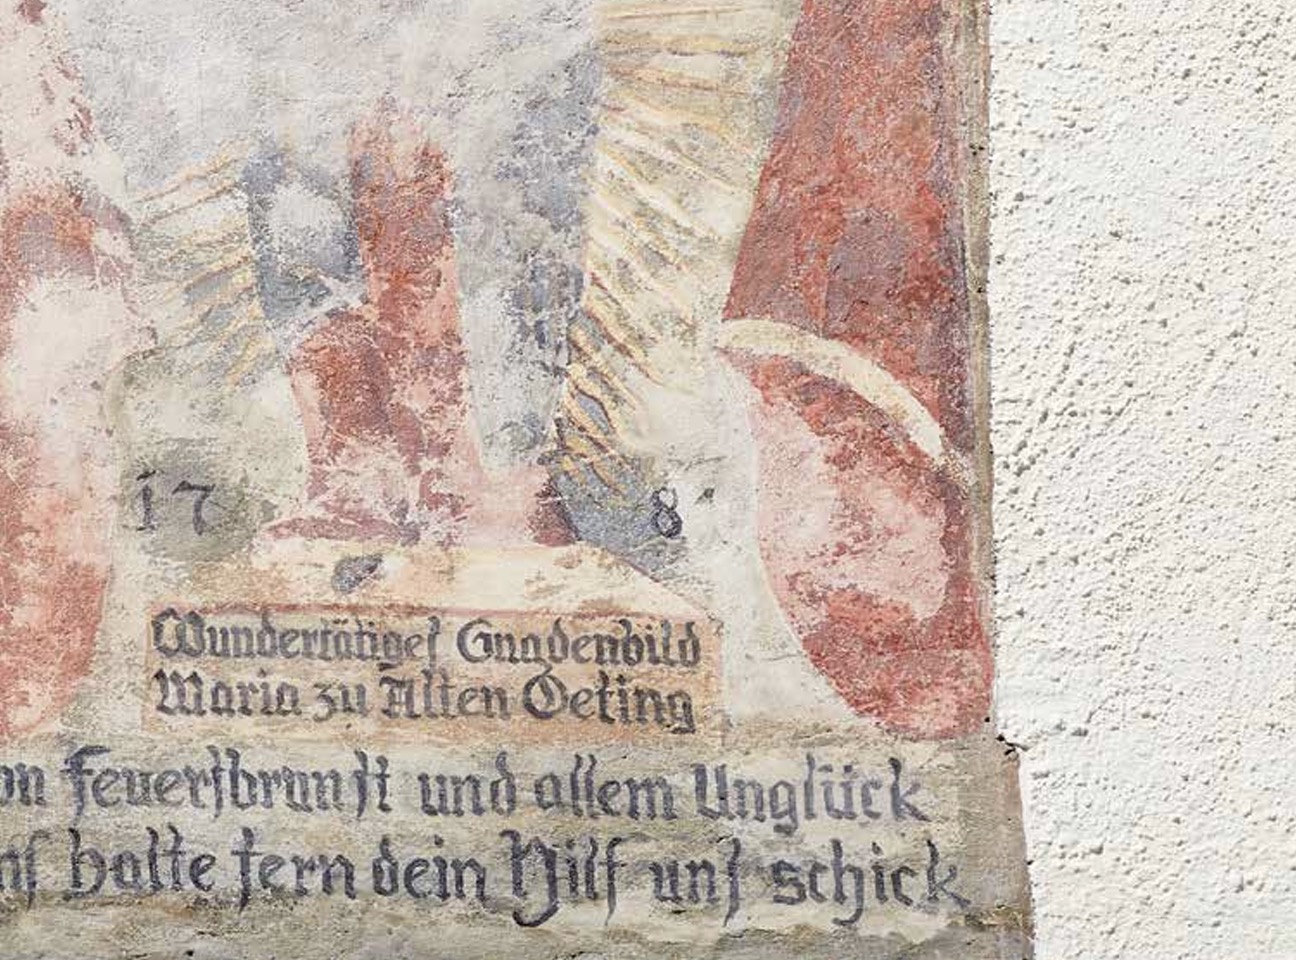 17 8
Wundertätiges Gnadenbild
Maria zu Alten Oeting
on Feuersbrunst und allem Unglück
ns halte fern dein Hilf uns schick